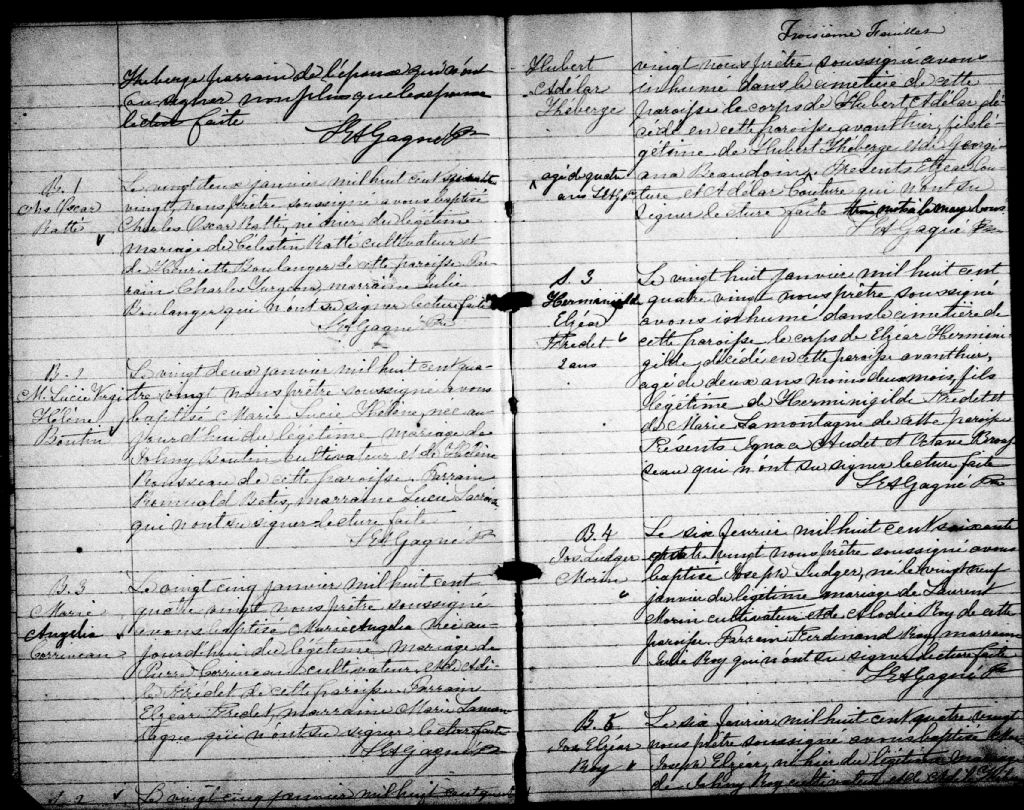 Theberge parrain de l'époux qui n'ont
su signer non plus que les epoux
lecture faite
Gagné Ptre
B. 1
Chs Oscar
Ratté
Le vingt deux janvier mil huit cent
vingt, nous prêtre soussigné avons baptisé
Charles Oscar Ratté, né hier du légitime
mariage de Célestin Ratté cultivateur et
de Henriette Boulanger de cette paroisse Par-
rain Charles Turgeon, marraine Julie
Boulanger qui n'ont su signer lecture faite
Gagné Ptre
B. 2
M. Lucie
Hélène
Boutin
Le vingt deux janvier mil huit cent qua-
tre vingt nous prêtre soussigné avons
baptisé Marie Lucie Hélène, née au-
jourd'hui du légitime mariage de
Johny Boutin cultivateur et de Hélène
Rousseau de cette paroisse. Parrain
Romuald marraine Lucie
qui n'ont su signer lecture faite
Gagné Ptre
B. 3
Marie
Angelia
Corriveau
Le vingt cinq janvier mil huit cent
quatre vingt nous prêtre soussigné
avons baptisé Marie Angelia née au-
jourd'hui du légitime mariage de
Pierre Corriveau cultivateur, et de
Fredet de cette paroisse Parrain
Elzéar Fredet, marraine Marie Lamon-
tagne qui n'ont su signer lecture faite
Gagné Ptre
S. 2
Le vingt cinq janvier mil huit cent quatre
Troisième Feuillet
Hubert
Adélar
Théberge
agé de quatre
ans
vingt nous prêtre soussigné avons
inhumé dans le cimetière de cette
paroisse le corps de Hubert Adélar dé-
cédé en cette paroisse avant hier, fils lé-
gitime de Hubert Théberge et de Georgi-
ana Beaudoin, Présents Elzear Cou-
ture et Adélar Couture qui n'ont su
signer lecture faite
Gagné Ptre
S. 3
Herménigilde
Elzéar
Fredet
2 ans
Le vingt huit janvier mil huit cent
quatre vingt nous prêtre soussigné
avons inhumé dans le cimetière de
cette paroisse le corps de Elzéar Hermini-
gilde, décédé en cette paroisse avant hier,
agé de deux ans moins deux mois, fils
légitime de Herminigilde Fredet et
de Marie Lamontagne de cette paroisse
Présents Ignace Audet et Octave Brous-
seau qui n'ont su signer lecture faite
Gagné Ptre
B. 4
Jos Ludger
Morin
Le six février mil huit cent soixante
quatre vingt nous prêtre soussigné avons
baptisé Joseph Ludger, né le vingt neuf
janvier du légitime mariage de Laurent
Morin cultivateur et de Elodie Roy de cette
paroisse Parrain Ferdinand Roy, marraine
Julie Roy qui n'ont su signer lecture faite
Gagné Ptre
B. 5
Jos Elzéar
Roy
Le six février mil huit cent quatre vingt
nous prêtre soussigné avons baptisé
Joseph Elzéar, né hier du légitime mariage
de Johny Roy cultivateur et de